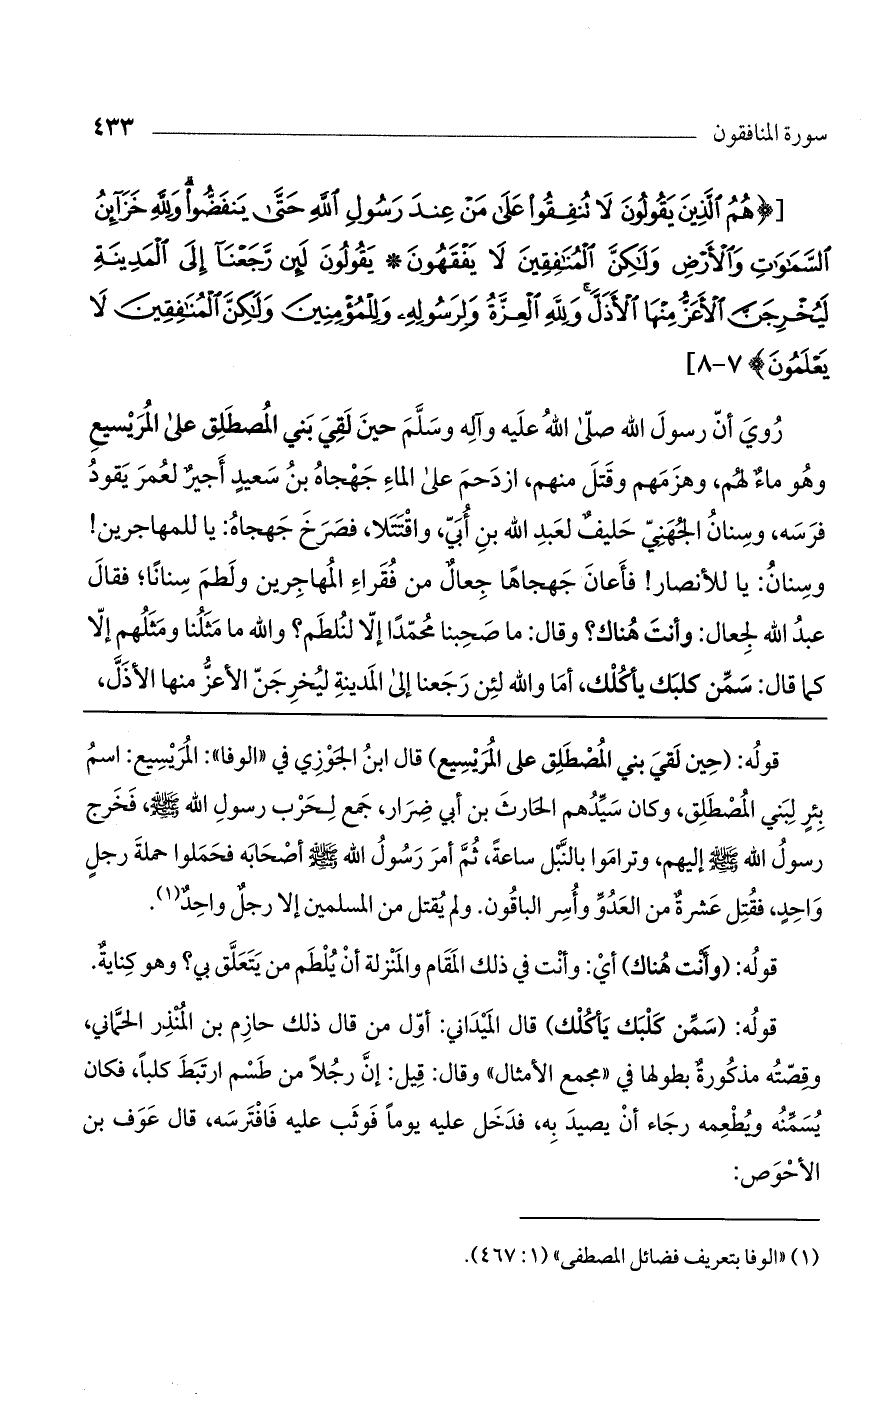 سورة المنافقون ٤٣٣
[﴿هُمُ ٱلَّذِينَ يَقُولُونَ لَا تُنفِقُوا۟ عَلَىٰ مَنْ عِندَ رَسُولِ ٱللَّهِ حَتَّىٰ يَنفَضُّوا۟ ۗ وَلِلَّهِ خَزَآئِنُ
ٱلسَّمَٰوَٰتِ وَٱلْأَرْضِ وَلَٰكِنَّ ٱلْمُنَٰفِقِينَ لَا يَفْقَهُونَ * يَقُولُونَ لَئِن رَّجَعْنَآ إِلَى ٱلْمَدِينَةِ
لَيُخْرِجَنَّ ٱلْأَعَزُّ مِنْهَا ٱلْأَذَلَّ ۚ وَلِلَّهِ ٱلْعِزَّةُ وَلِرَسُولِهِۦ وَلِلْمُؤْمِنِينَ وَلَٰكِنَّ ٱلْمُنَٰفِقِينَ لَا
يَعْلَمُونَ﴾ ٧-٨]
رُويَ أنّ رسولَ الله صلّىٰ اللهُ علَيه وآله وسَلَّمَ حينَ لَقِيَ بَني المُصطَلِق علىٰ المُرَيْسيعِ
وهُو ماءٌ لهُم، وهزَمَهم وقَتَلَ منهم، ازدَحمَ علىٰ الماءِ جَهْجاهُ بنُ سَعيدٍ أَجيرٌ لعُمرَ يَقودُ
فرَسَه، وسِنانُ الجُهَنِيّ حَليفٌ لعَبدِ الله بنِ أُبَيّ، واقْتَتَلا، فصَرَخَ جَهجاهُ: يا للمهاجرين!
وسِنانُ: يا للأنصار! فأَعانَ جَهجاهًا جِعالٌ من فُقَراءِ المُهاجِرين ولَطمَ سِنانًا؛ فقالَ
عبدُ الله لِجعال: وأنتَ هُناك؟ وقال: ما صَحِبنا مُحمّدًا إلّا لنُلطَم؟ والله ما مَثَلُنا ومَثَلُهم إلّا
كما قال: سَمِّن كلبَك يأكُلْك، أمَا والله لئِن رَجَعنا إلىٰ المَدينةِ ليُخرِجَنّ الأعزُّ منها الأذَلَّ،
قولُه: (حِين لَقيَ بني المُصْطَلِق على المُرَيْسِيع) قال ابنُ الجَوْزِي في «الوفا»: المُرَيْسِيع: اسمُ
بِئرٍ لِبَني المُصْطَلِق، وكان سَيِّدُهم الحَارِثَ بن أبي ضِرَار، جَمع لِحَرْب رسولِ الله ﷺ، فَخَرج
رسولُ الله ﷺ إليهم، وترامَوا بالنَّبْل ساعةً، ثُمَّ أمرَ رَسُولُ الله ﷺ أصْحَابَه فحَمَلوا حملةَ رجلٍ
وَاحِدٍ، فقُتِل عَشرةٌ من العَدُوِّ وأُسِر الباقُون. ولم يُقتل من المسلمين إلا رجلٌ واحِدٌ(١).
قولُه: (وأَنْت هُناك) أيْ: وأنْت في ذلك المَقَام والمَنْزلة أنْ يُلْطَم من يَتَعَلَّق بي؟ وهو كِنايةٌ.
قولُه: (سَمِّن كَلْبَك يَأكُلْك) قال المَيْدَاني: أوّل من قال ذلك حازِم بن المُنْذِر الحمَّاني،
وقِصّتُه مذكُورةٌ بطولها في «مجمع الأمثال» وقال: قِيل: إنَّ رجُلاً من طَسْم ارتبَطَ كلباً، فكان
يُسَمِّنُه ويُطْعِمه رجَاء أنْ يصيدَ بِه، فدَخَل عليه يوماً فَوثَب عليه فَافْترسَه، قال عَوَف بن
الأحْوَص:
(١) «الوفا بتعريف فضائل المصطفى» (١: ٤٦٧).